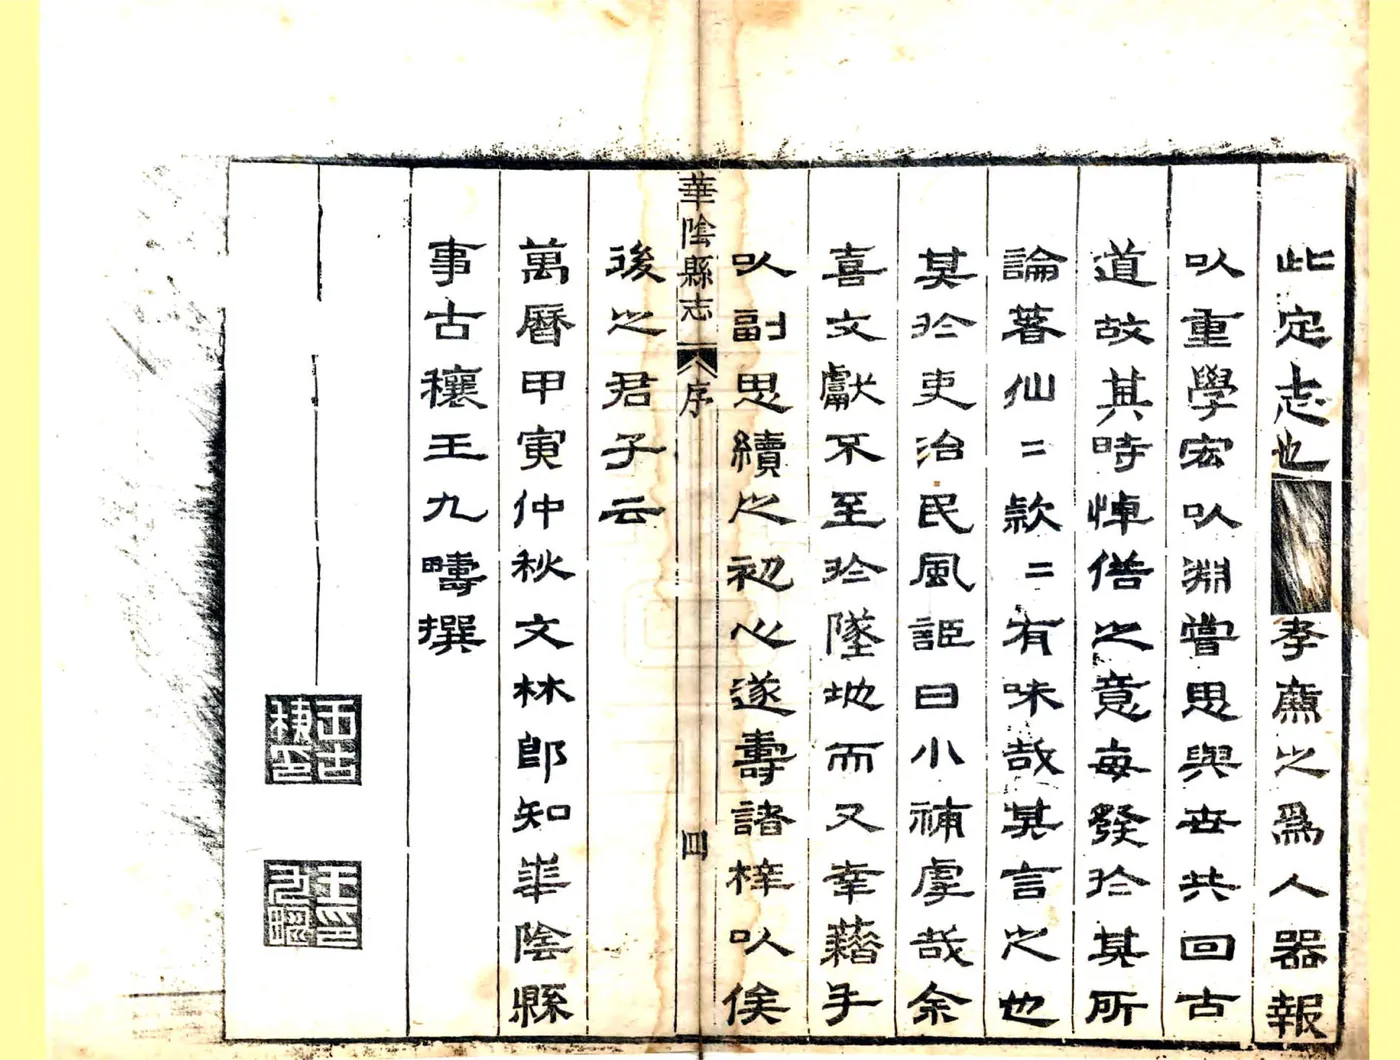 此定志也孝廉之爲人器報
以重學宏以淵嘗思與世共回古
道故其時悼僭之意每發於其所
論著仙〻款〻有味哉其言之也
其於吏治民風詎曰小補虖哉余
喜文獻不至於墜地而又幸藉手
以副思續之初心遂壽諸梓以俟
華陰縣志
序
四
後之君子云
萬曆甲寅仲秋文林郎知華陰縣
事古穰王九疇撰
王九疇印